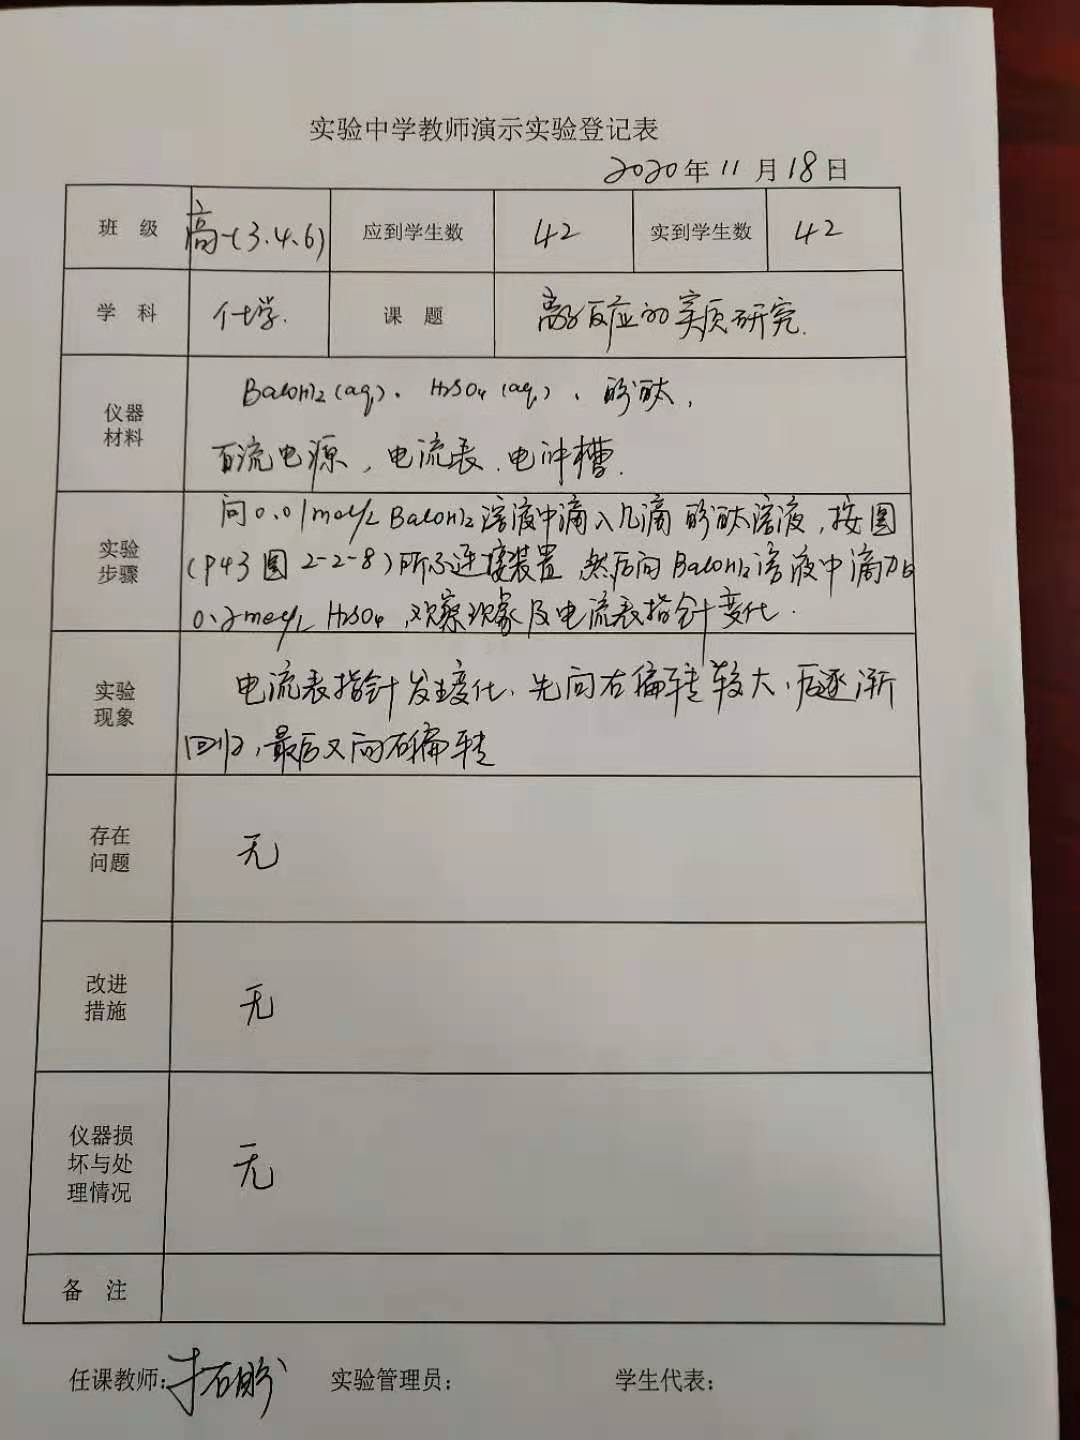 实验中学教师演示实验登记表
2020年11月18日
班 级 高一(3.4.6) 应到学生数 42 实到学生数 42
学 科 化学. 课 题 离子反应的实质研究.
仪器
材料
Ba(OH)2(aq). H2SO4(aq)、酚酞,
直流电源, 电流表. 电冲槽.
实验
步骤
向0.01mol/L Ba(OH)2溶液中滴入几滴酚酞溶液, 按图
(P43图2-2-8)所示连接装置, 然后向Ba(OH)2溶液中滴加
0.2mol/L H2SO4, 观察现象及电流表指针变化.
实验
现象
电流表指针发生变化. 先向右偏转较大, 后逐渐
回归, 最后又向右偏转
存在
问题
无
改进
措施
无
仪器损
坏与处
理情况
无
备 注
任课教师: 实验管理员: 学生代表: